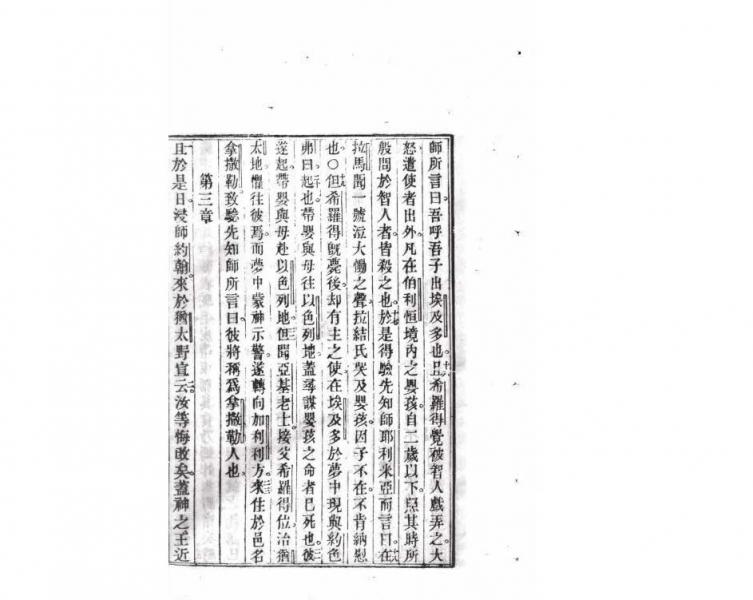 師所言曰吾呼吾子出埃及多也且希羅得覺彼智人戲弄之大
怒遣使者出外凡在伯利恒境內之嬰孩自二歲以下照其時所
般問於智人者皆殺之也於是得驗先知師耶利米亞而言曰在
拉馬聞一號泣大慟之聲拉結氏哭及嬰孩因子不在不肯納慰
也○但希羅得旣薨後却有主之使在埃及多於夢中現與約色
弗曰起也帶嬰與母往以色列地蓋尋謀嬰孩之命者已死也彼
遂起帶嬰與母赴以色列地但聞亞基老士接父希羅得位治猶
太地懼往彼焉而夢中蒙神示警遂轉向加利利方來住於邑名
拿撒勒致驗先知師所言曰彼將稱爲拿撒勒人也
第三章
且於是日浸師約翰來於猶太野宣云汝等悔改矣蓋神之王近